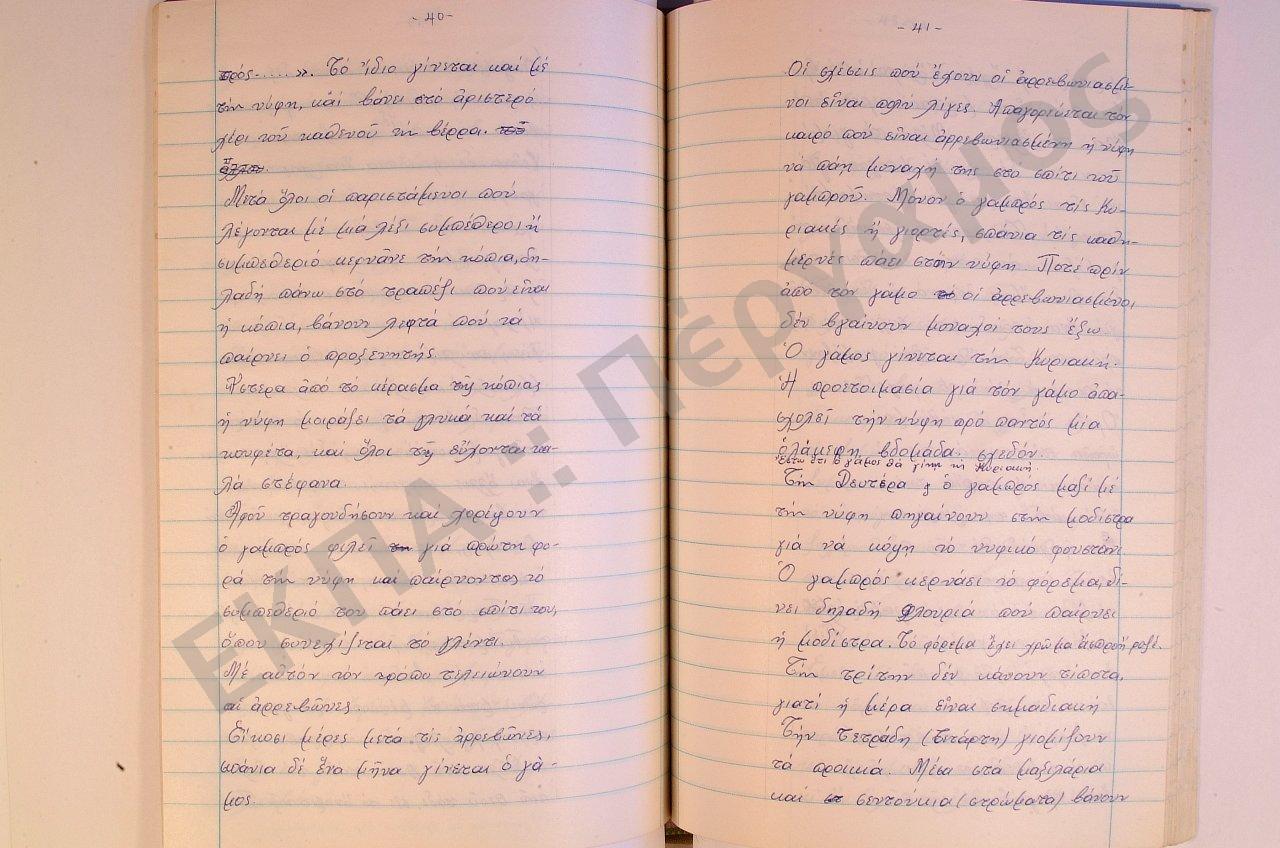 - 40 -
πρός.....». Τό ἴδιο γίνεται καί μέ
τήν νύφη, καί βάνει στό ἀριστερό
χέρι τοῦ καθενοῦ τή βέρρα. τοῦ
ἄλλου.
Μετά ὅλοι οἱ παριστάμενοι πού
λέγονται μέ μιά λέξι συμπέθεροι ἤ
συμπεθεριό κερνᾶνε τήν κόπια, δη-
λαδή πάνω στό τραπέζι πού εἶναι
ἡ κόπια, βάνουν λεφτά πού τά
παίρνει ὁ προξενητής.
Ὕστερα ἀπό τό κέρασμα τῆς κόπιας
ἡ νύφη μοιράζει τά γλυκά καί τά
κουφέτα, καί ὅλοι τῆς εὔχονται κα-
λά στέφανα.
Ἀφοῦ τραγουδήσουν καί χορέψουν
ὁ γαμπρός φιλεῖ τη γιά πρώτη φο-
ρά τήν νύφη καί παίρνοντας τό
συμπεθεριό του πάει στό σπίτι του,
ὅπου συνεχίζεται τό γλέντι.
Μέ αὐτόν τόν τρόπο τελειώνουν
αἱ ἀρρεβῶνες.
Εἴκοσι μέρες μετά τίς ἀρρεβῶνες,
σπάνια δέ ἕνα μῆνα γίνεται ὁ γά-
μος.
- 41 -
Οἱ σχέσεις πού ἔχουν οἱ ἀρρεβωνιασμέ-
νοι εἶναι πολύ λίγες. Ἀπαγορεύεται τόν
καιρό πού εἶναι ἀρρεβωνιασμένη ἡ νύφη
νά πάη μοναχή της στο σπίτι τοῦ
γαμπροῦ. Μόνον ὁ γαμπρός τίς Κυ-
ριακές ἤ γιορτές, σπάνια τίς καθη-
μερνές πάει στήν νύφη. Ποτέ πρίν
ἀπό τόν γάμο οἱ ἀρρεβωνιασμένοι,
δέν βγαίνουν μοναχοί τους ἔξω
Ὁ γάμος γίνεται τήν Κυριακή.
Ἡ προετοιμασία γιά τόν γάμο ἀπα-
σχολεῖ τήν νύφη πρό παντός μία
ὁλάκερη βδομάδα σχεδόν.
Ἔστω ὅτι ὁ γάμος θά γίνη τή Κυριακή.
Τήν Δευτέρα ὁ γαμπρός μαζί μέ
τήν νύφη πηγαίνουν στήν μοδίστρα
γιά νά κόψη τό νυφικό φουστάνι
Ὁ γαμπρός κερνάει τό φόρεμα, δί-
νει δηλαδή φλουριά πού παίρνει
ἡ μοδίστρα. Τό φόρεμα ἔχει χρῶμα ἄσπρο ἤ ροζέ.
Τήν τρίτην δέν κάνουν τίποτα,
γιατί ἡ μέρα εἶναι σημαδιακή
Τήν Τετράδη (Τετάρτη) γιομίζουν
τά προικιά. Μέσα στά μαξιλάρια
καί στ σεντούκια (στρώματα) βάνουν
ΕΚΠΑ :: Πέργαμος